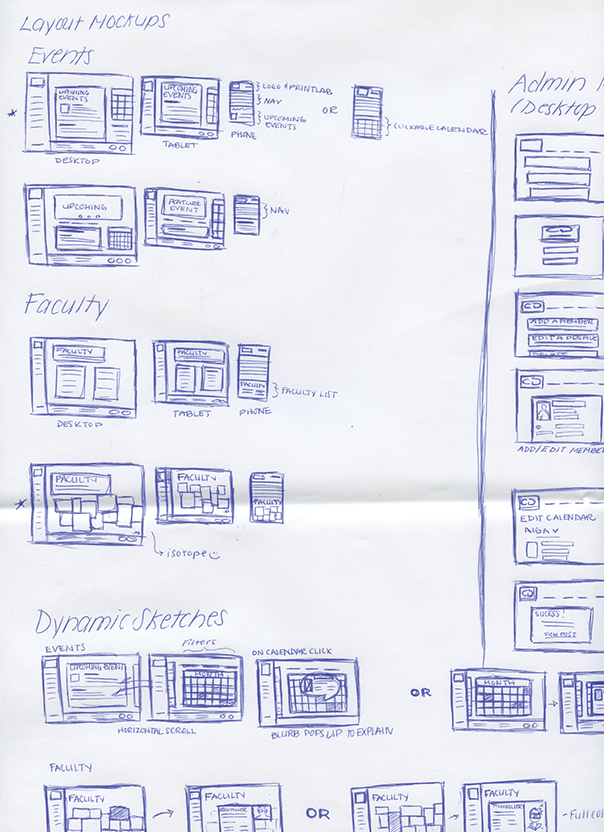 Layout Mockups
Events
UPCOMING
EVENTS
DESKTOP
UPCOMING
EVENTS
TABLET
LOGO & PRINTLAB
NAV
UPCOMING
EVENTS
PHONE
OR
CLICKABLE CALENDAR
UPCOMING
FEATURE
EVENT
NAV
Faculty
FACULTY
DESKTOP
FACULTY
TABLET
FACULTY
PHONE
FACULTY LIST
FACULTY
FACULTY
FACULTY
isotope
Dynamic Sketches
EVENTS
UPCOMING EVENT
Filters
MONTH
HORIZONTAL SCROLL
ON CALENDAR CLICK
BLURB POPS UP TO EXPLAIN
OR
MONTH
FACULTY
FACULTY
FACULTY
OR
FACULTY
FACULTY
-Full col
Admin
(Desktop
CD
ADD A MEMBER
EDIT A PEOPLE
DELETE
CD
ADD/EDIT MEMBER
CD
EDIT CALENDAR
AIGA v
CD
SUCESS!
VIEW POST